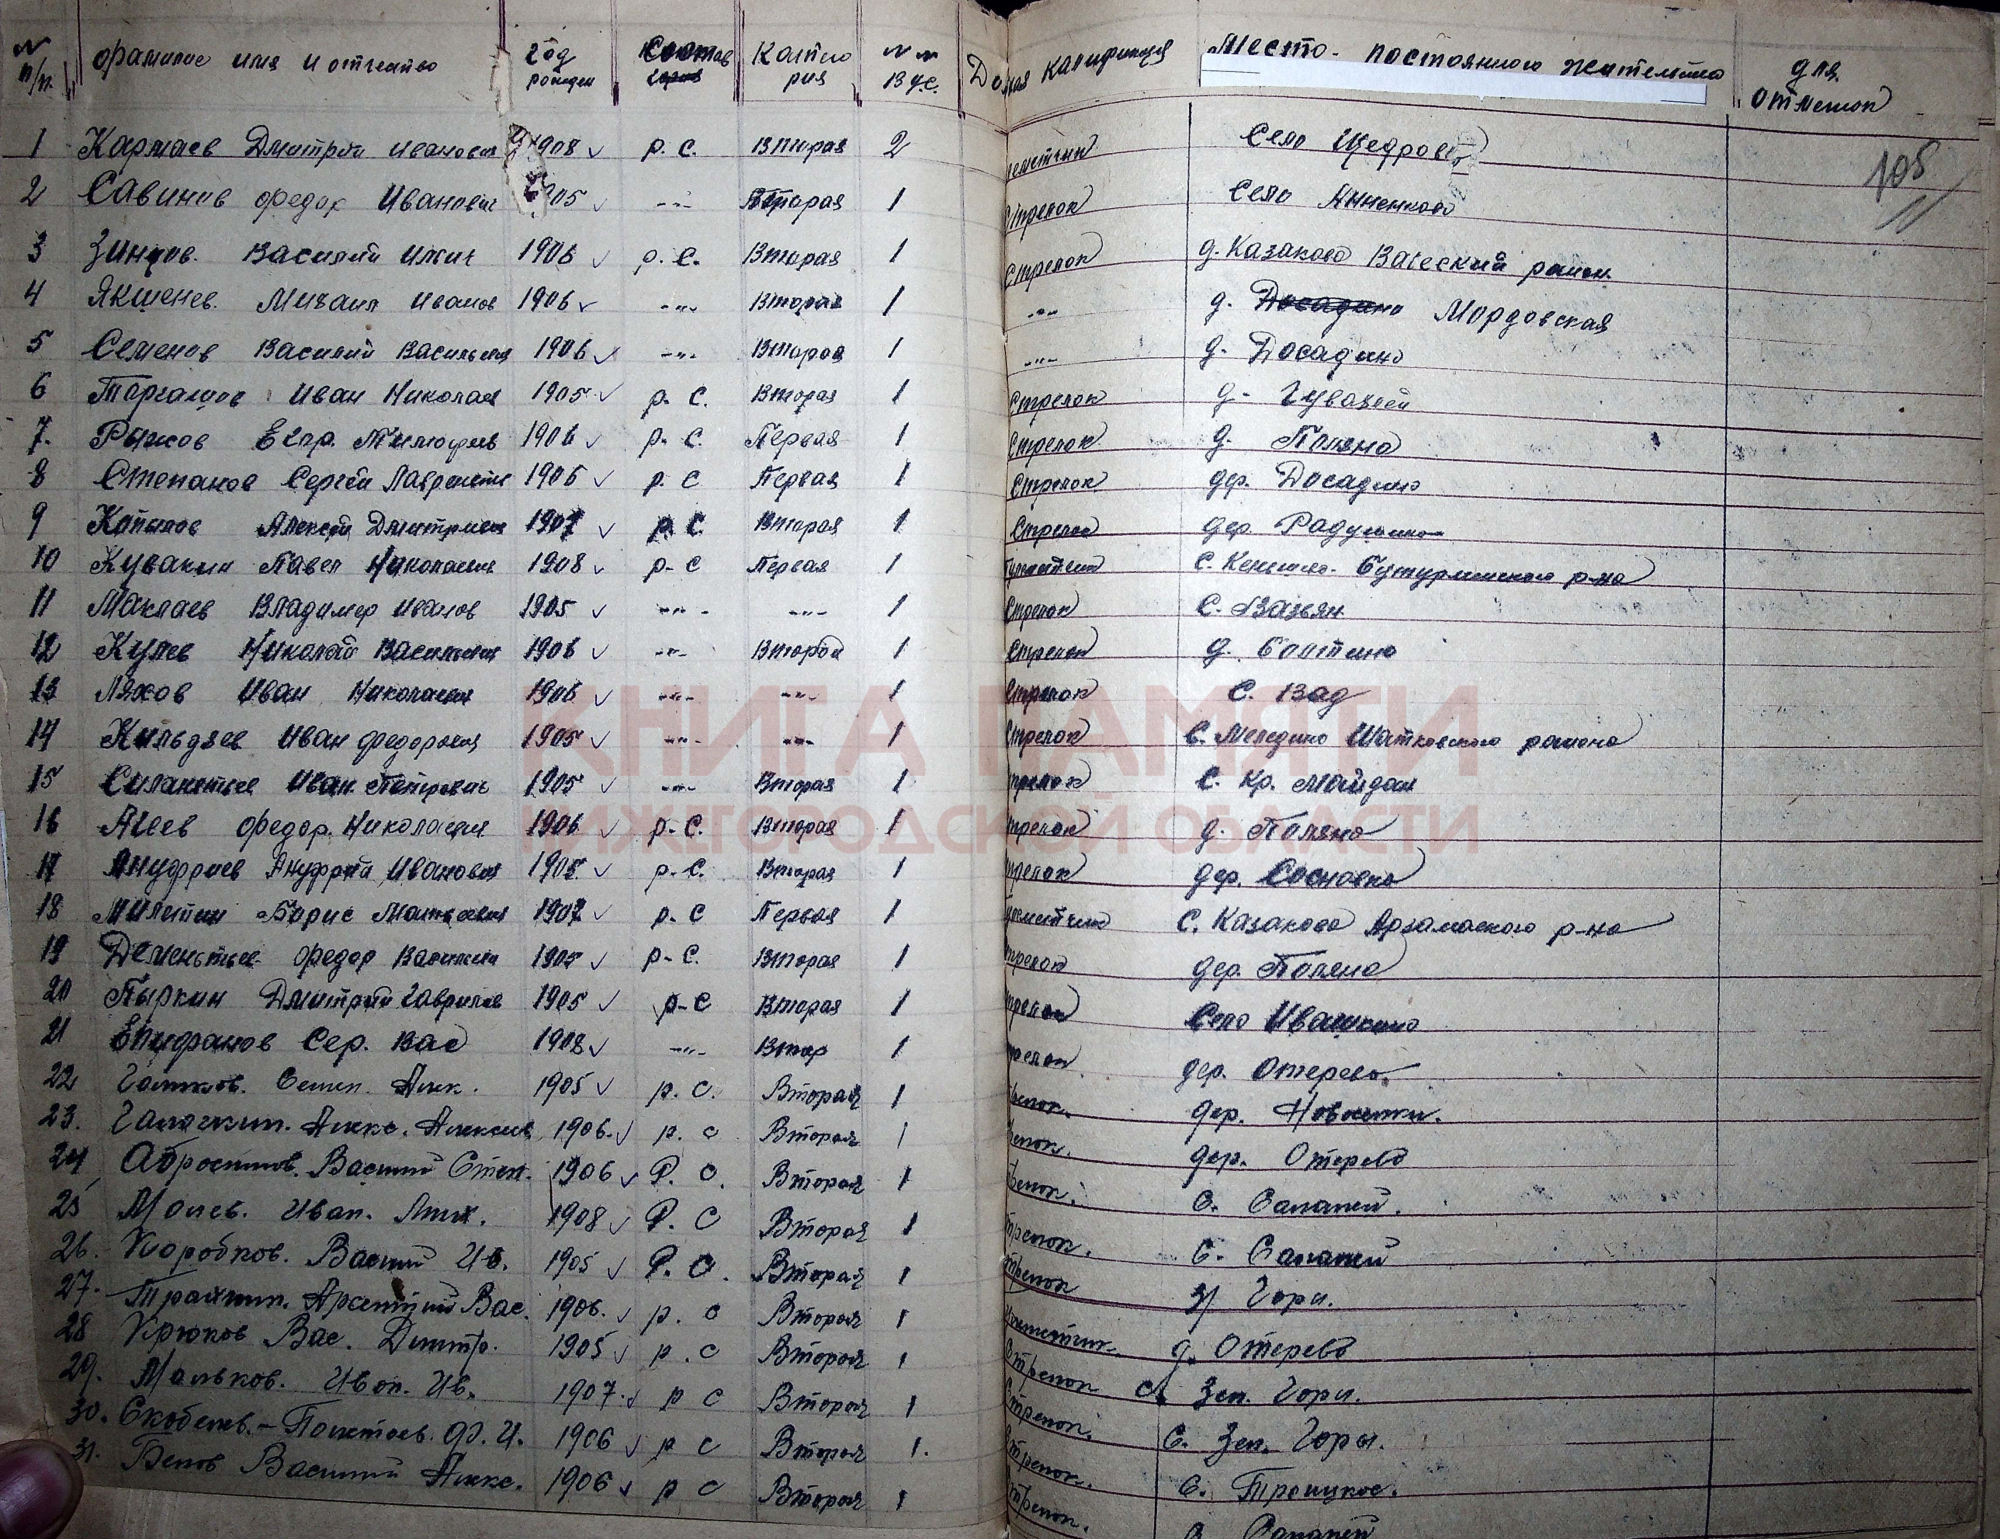 N п/п. фамилие имя и отчество год рожден Состав Катего рия N N ВУС. Должная Калификация Место постоянного жительства для отметок
1 Кармаев Дмитрий Иванович 1908 р. с. Вторая 2 Село Щедрово
108
2 Савинов Федор Иванович 1905 -"- Вторая 1 Стрелок Село Анненково
3 Василий Илич 1906 р. с. Вторая 1 Стрелок д. Казаково Вачский район
4 Якшенев. Михаил Иванов 1906 -"- Вторая 1 -"- д. Досадино Мордовская
5 Семенов Василий Васильев 1906 -"- Вторая 1 -"- д. Досадино
6 Торгашов Иван Николаев 1905 р. с. Вторая 1 Стрелок д.
7. Рыжов Егор. 1906 р. с. Первая 1 Стрелок д. Поляна
8 Степанов Сергей Лаврентье 1906 р. с Первая 1 Стрелок дер. Досадино
9 Копылов Алексей Дмитриев 1907 р. с. Вторая 1 Стрелок дер.
10 Кувакин Павел Николаевич 1908 р. с Первая 1 с. Бутурлинского р-на
11 Маклаев Владимер Иванов 1905 -"- -"- 1 Стрелок С. Вазьян
12 Кулев Николай Васильевич 1906 -"- Второй 1 Стрелок д. Болтино
13 Ляхов Иван Николаевич 1906 -"- -"- 1 Стрелок С. Вад
14 Кильдяев Иван Федорович 1905 -"- -"- 1 Стрелок с. Шатковского района
15 Силантьев Иван Петрович 1905 -"- Вторая 1 Стрелок С. Кр. Майдан
16 Агеев Федор Николаевич 1906 р. с. Вторая 1 Стрелок д. Поляна
17 Ануфриев Ануфрий Иванович 1905 р. с. Вторая 1 Стрелок дер. Сосновка
18 Борис Матвеевич 1907 р. с Первая 1 С. Казаково Арзамаского р-на
19 Дементьев Федор Васильев 1905 р. с. Вторая 1 Стрелок дер. Поляна
20 Пыркин Дмитрий Гаврилов 1905 р-с Вторая 1 Стрелок Село Ивашкино
21 Епифанов Сер. Вас 1908 -"- Втор 1 Стрелок дер. Отерево.
22 Семен. 1905 р. с. Вторая 1 Стрелок. дер. Новоселки.
23. Галочкин. Алекс. Алексеев 1906. р. с Вторая 1 Стрелок. дер. Отерево
24 Абросимов. Василий Степ. 1906 Р. С. Вторая 1 Стрелок. С. Салалей.
25 Иван. Мих. 1908 Р. С Вторая 1 Стрелок. С. Салалей
26. Коробков. Василий Ив. 1905 Р. С. Вторая 1 Стрелок З/ Горы.
27. Трайнин. Арсентий Вас. 1906. р. с Вторая 1 д. Отерево
28 Крюков Вас. Дмитр. 1905 р. с Вторая 1 Стрелок с. Зел. Горы.
29. Мальков. Иван. Ив. 1907. р с Вторая 1 Стрелок. С. Зел. Горы.
30. Ф. И. 1906 р с Вторая 1. Стрелок. С. Троицкое.
31. Белов Василий Алекс. 1906 р с Вторая 1 Стрелок. С. Салалей
КНИГА ПАМЯТИ
НИЖЕГОРОДСКОЙ ОБЛАСТИ